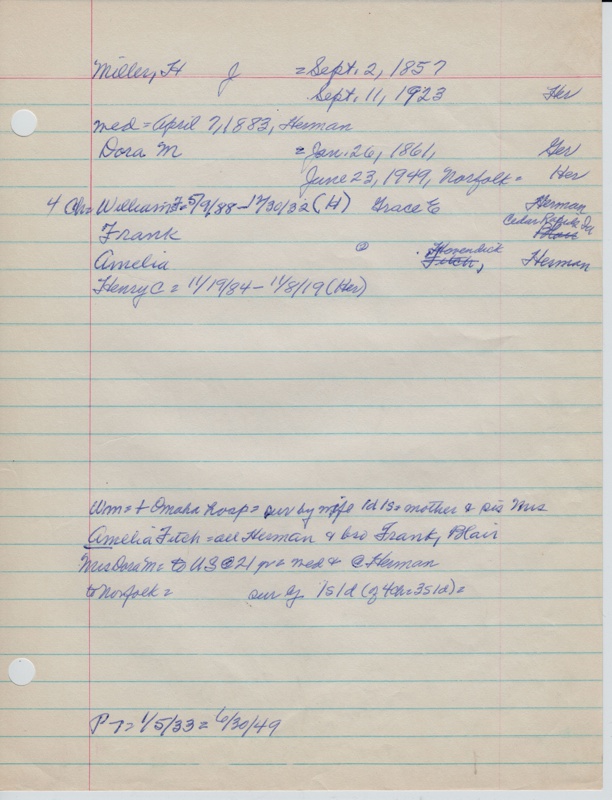 Miller, H J = Sept. 2, 1857
Sept. 11, 1923 Her
med = April 7, 1883, Herman
Dora M = Jan. 26, 1861, Ger
June 23, 1949, Norfolk = Her
4 Ch = William F = 5/9/88 - 12/30/32 (H) Grace E Herman
Cedar Rapids Ia
Frank Blair
Amelia @ Hovendick
Fitch, Herman
Henry C = 11/19/84 - 11/8/19 (Her)
Wm = + Omaha Hosp = sur by wife 1d 1s = mother & sis Mrs
Amelia Fitch = all Herman & bro Frank, Blair
Mrs Dora M = to US @ 21 yr = med & @ Herman
to Norfolk = sur by 1s 1d (of 4 chr 3s 1d) =
P-T = 1/5/33 = 6/30/49